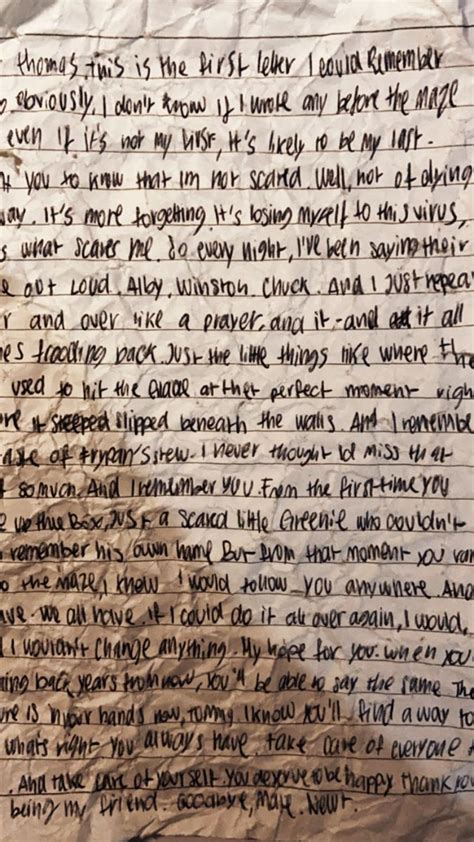 thomas, this is the first letter I could Remember
obviously, I don't know if I wrote any before the maze
even if it's not my first, It's likely to be my last.
you to know that Im not scared. Well, not of dying
way. It's more forgetting. It's losing myself to this virus,
s what scares me. So every night, I've been saying their
out Loud. Alby. Winston. Chuck. And I Just repea
r and over like a prayer, and it - and it all
es flooding back. Just the little things like where the
used to hit the Glade at that perfect moment righ
ore it slipped beneath the walls. And I remembe
aste of frypan's stew. I never thought Id miss that
so much. And I remember you. From the first time you
e up the Box, Just a scared little Greenie who couldn't
remember his own name. But from that moment you ran
o the maze, I knew I would follow you anywhere. And
ave. We all have. If I could do it all over again, I would,
I wouldn't change anything. My hope for you. when you
ing back years from now, You'll be able to say the same. The
ure is in your hands now, Tommy. I know you'll find a way to
what's right you always have. take care of everyone
. And take care of yourself. You deserve to be happy. thank you
being my friend. Goodbye, Mate. Newt.